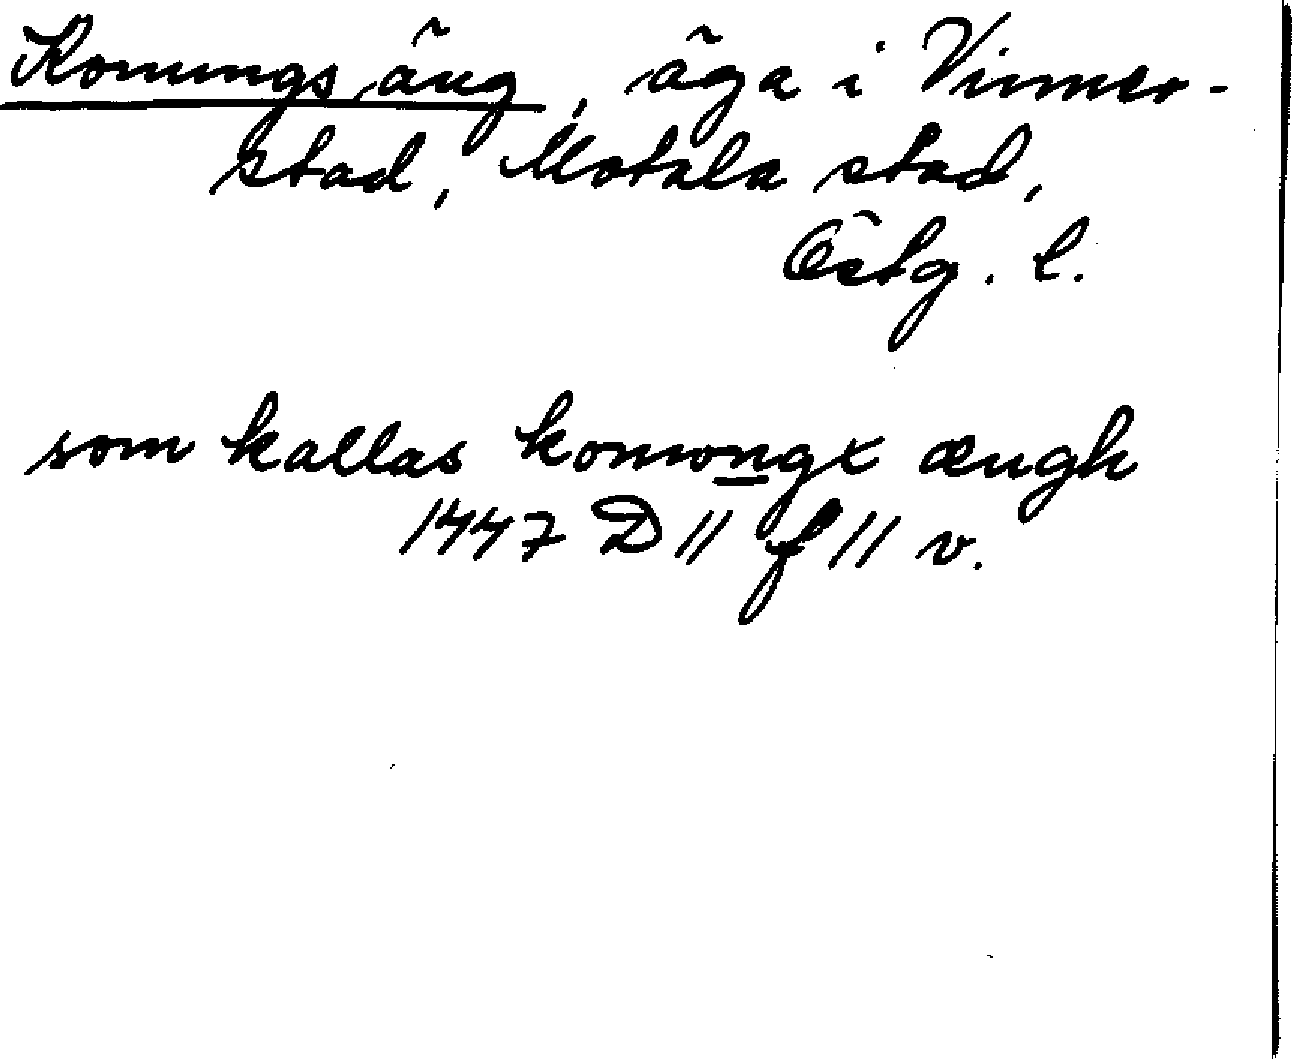 Konungs äng, äga i Vinner-
stad, Motala stad,
Östg. l.
som kallas konongx ængh
1447 D 11 f 11 v.